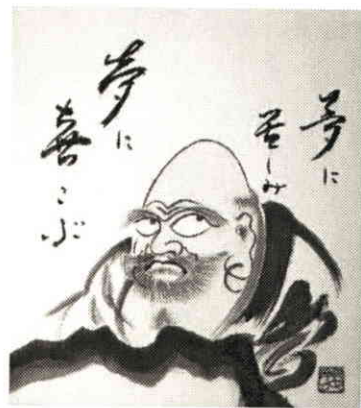 夢に
苦しみ
夢に
喜こぶ